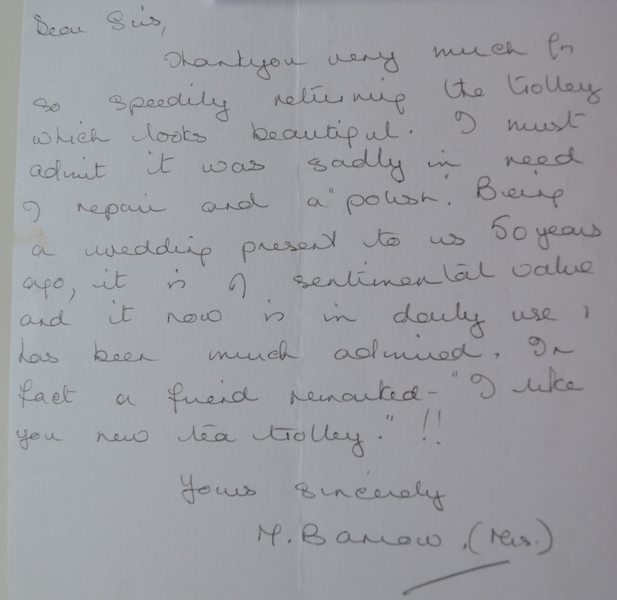 Dear Sirs,
Thankyou very much for
so speedily returning the trolley
which looks beautiful. I must
admit it was sadly in need
of repair and a "polish". Being
a wedding present to us 50 years
ago, it is of sentimental value
and it now is in daily use &
has been much admired. In
fact a friend remarked - "I like
you new tea trolley." !!
Yours sincerely
M. Barrow. (Mrs.)